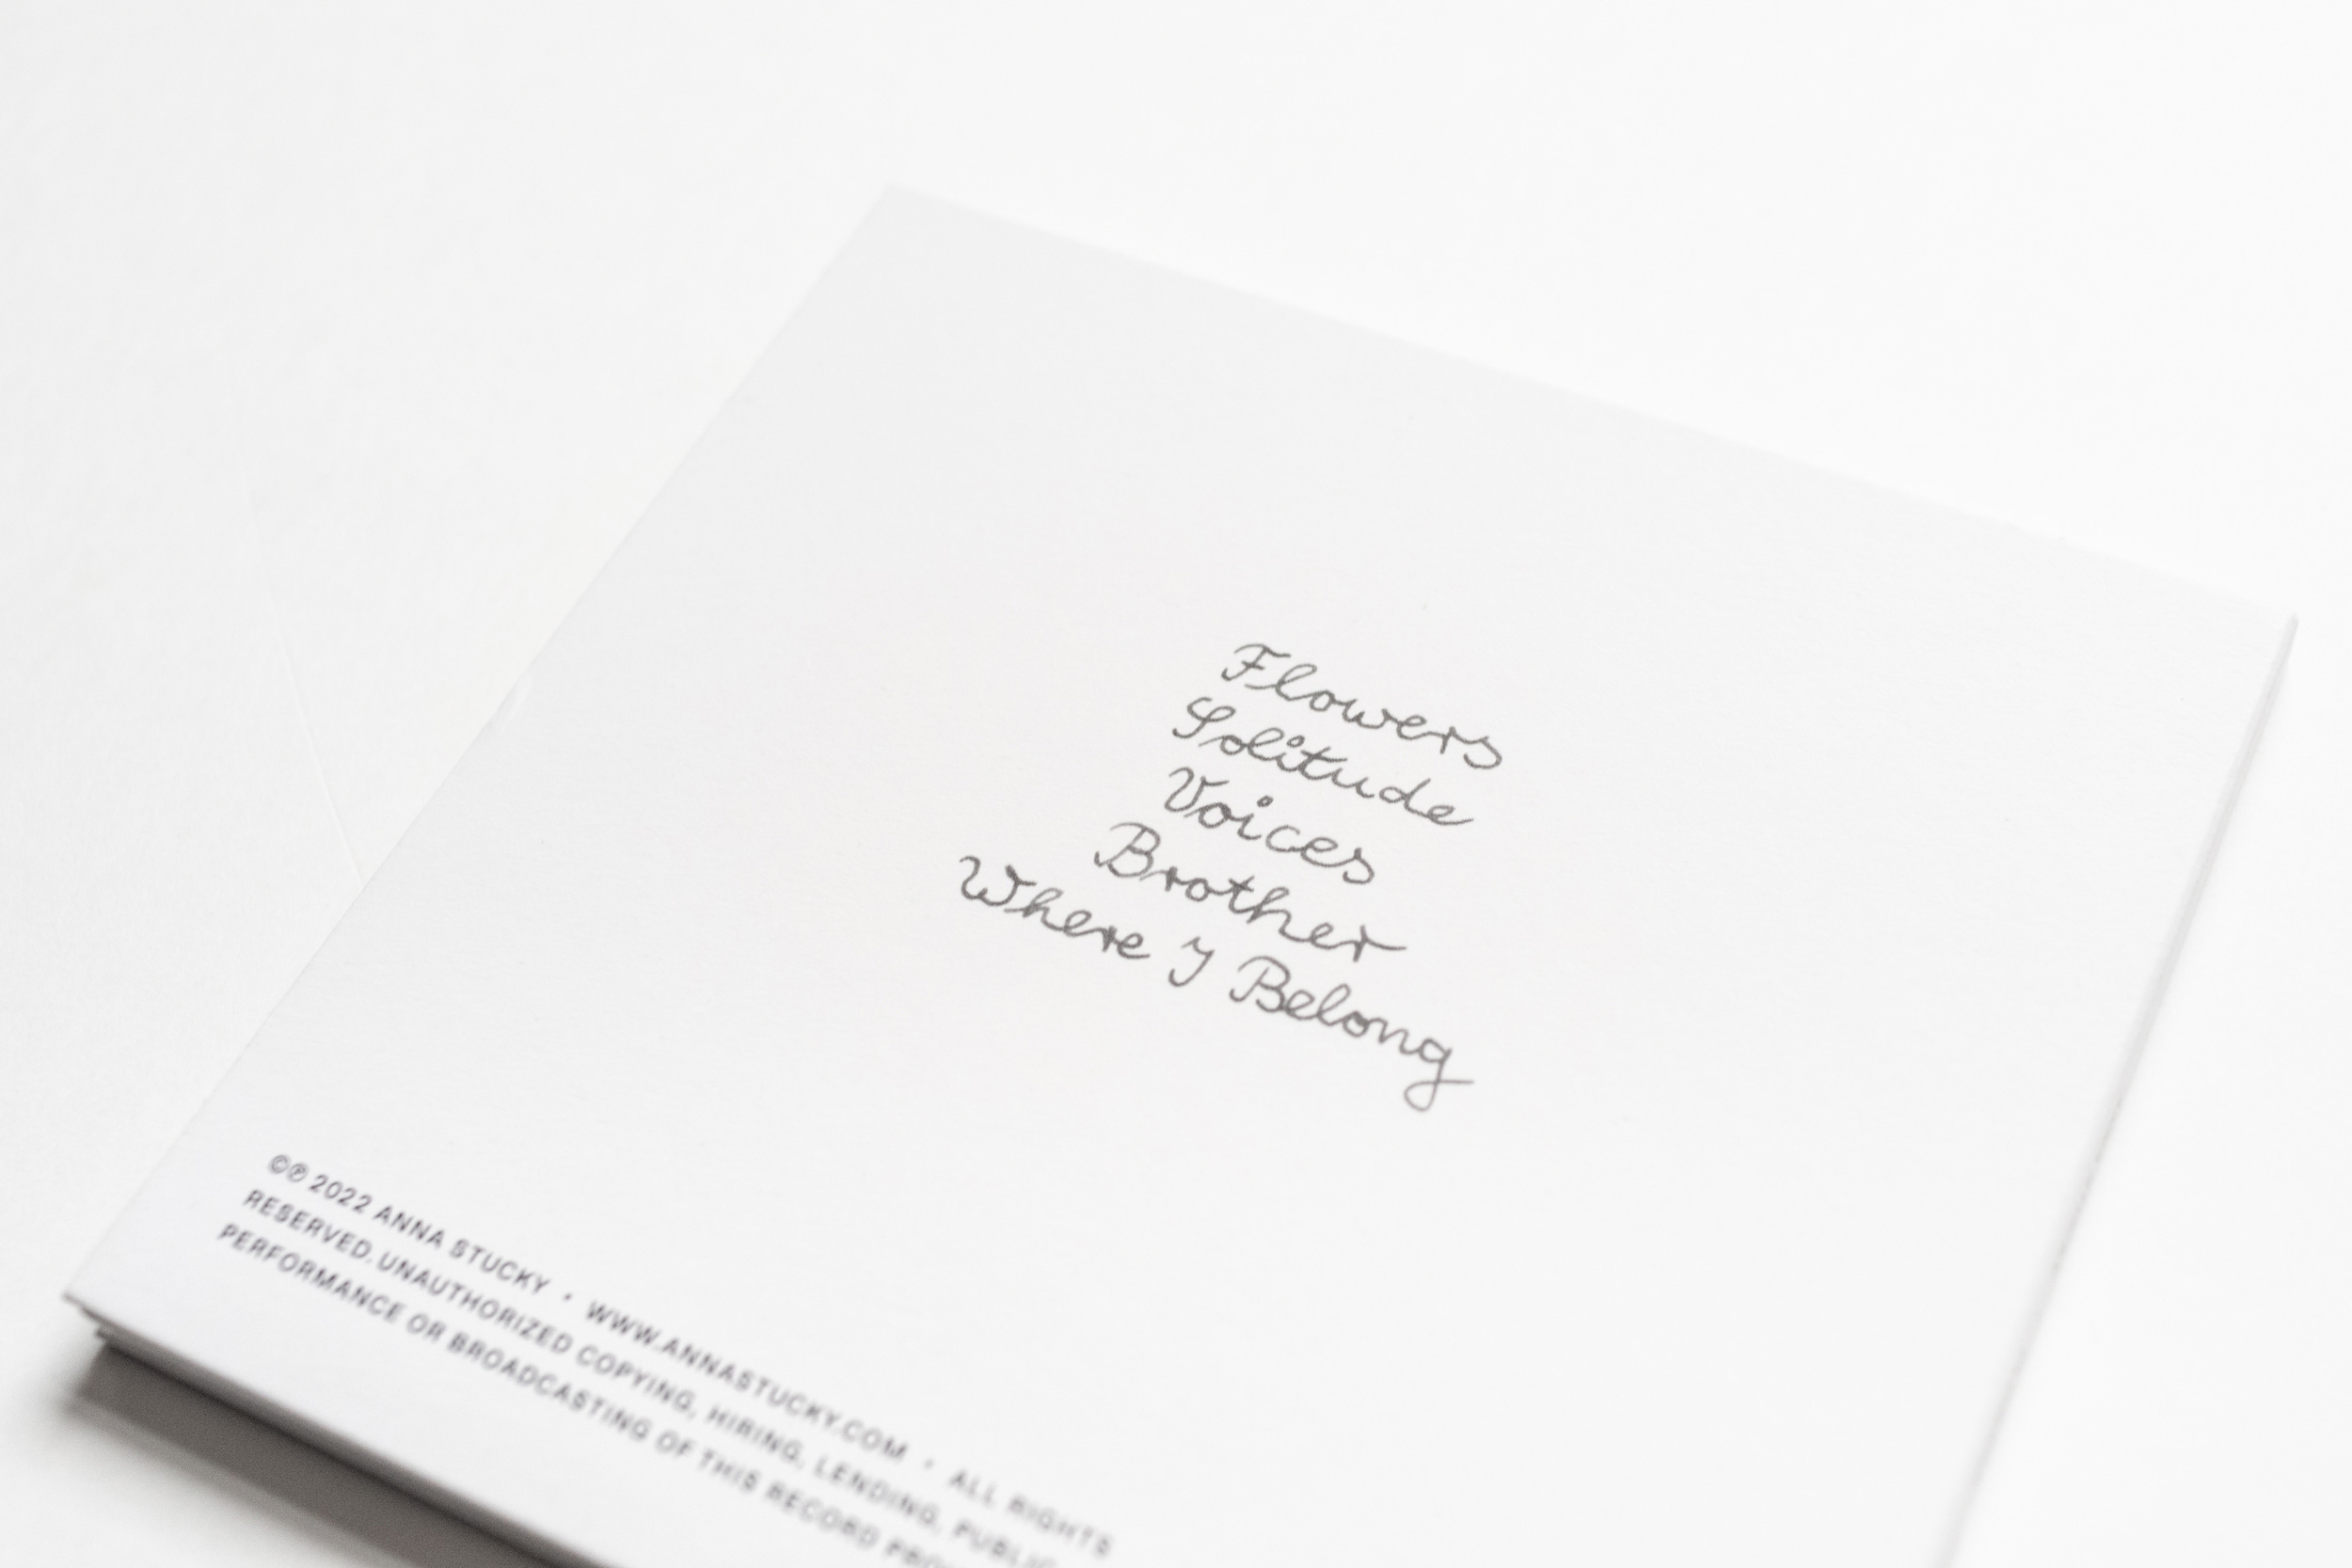 Flowers
Solitude
Voices
Brother
Where I Belong
©℗ 2022 ANNA STUCKY • WWW.ANNASTUCKY.COM • ALL RIGHTS
RESERVED. UNAUTHORIZED COPYING, HIRING, LENDING, PUBLIC
PERFORMANCE OR BROADCASTING OF THIS RECORD